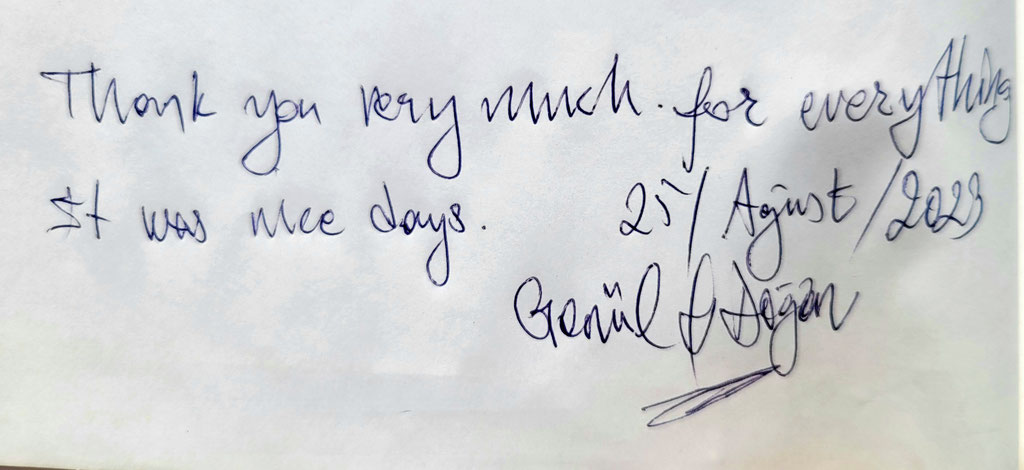 Thank you very much. for everything
It was nice days. 25/Agust/2023
Gönül & Doğan